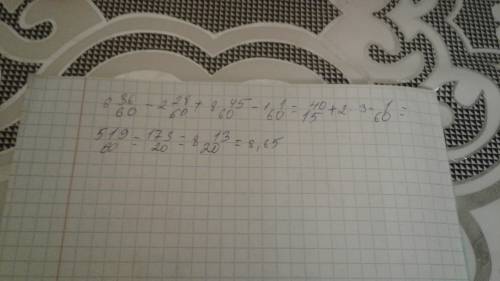 6 36/60 - 2 28/60 + 8 45/60 - 1 1/60 = 40/15 + 2 · 3 - 1/60 =
519/60 = 173/20 = 8 13/20 = 8,65